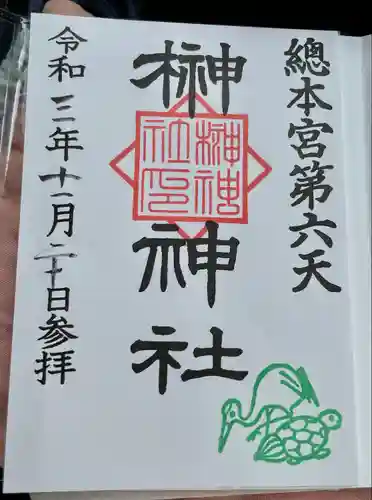 總本宮第六天
榊神社
榊神社印
令和三年十一月二十日参拝